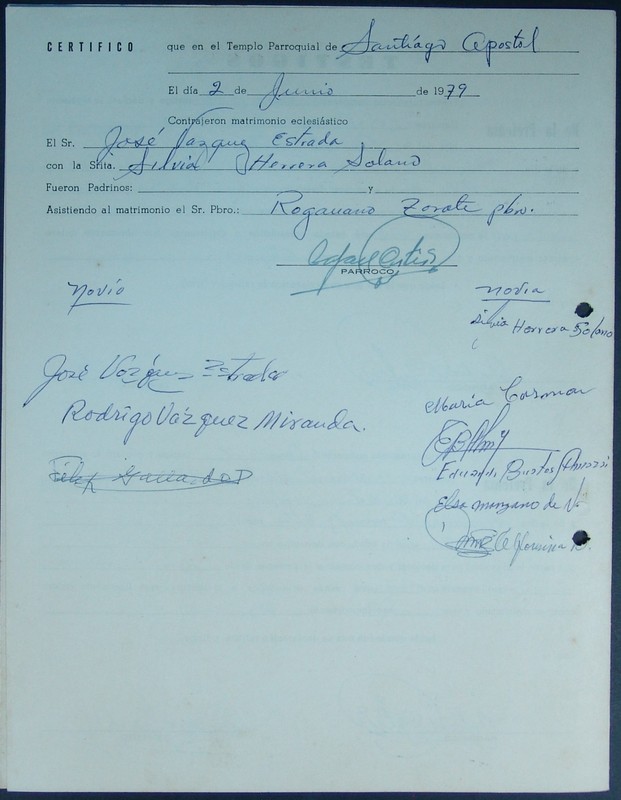 CERTIFICO que en el Templo Parroquial de Santiago Apostol
El día 2 de Junio de 1979
Contrajeron matrimonio eclesiástico
El Sr. José Vazquez Estrada
con la Srita. Silvia Herrera Solano
Fueron Padrinos: y
Asistiendo al matrimonio el Sr. Pbro.: Rogaciano Zorate pbro.
PARROCO
Novio
novia
Silvia Herrera Solano
José Vázquez Estrada
Rodrigo Vázquez Miranda.
María Carmen
Eduardo Bustos
Elsa manzano de V.